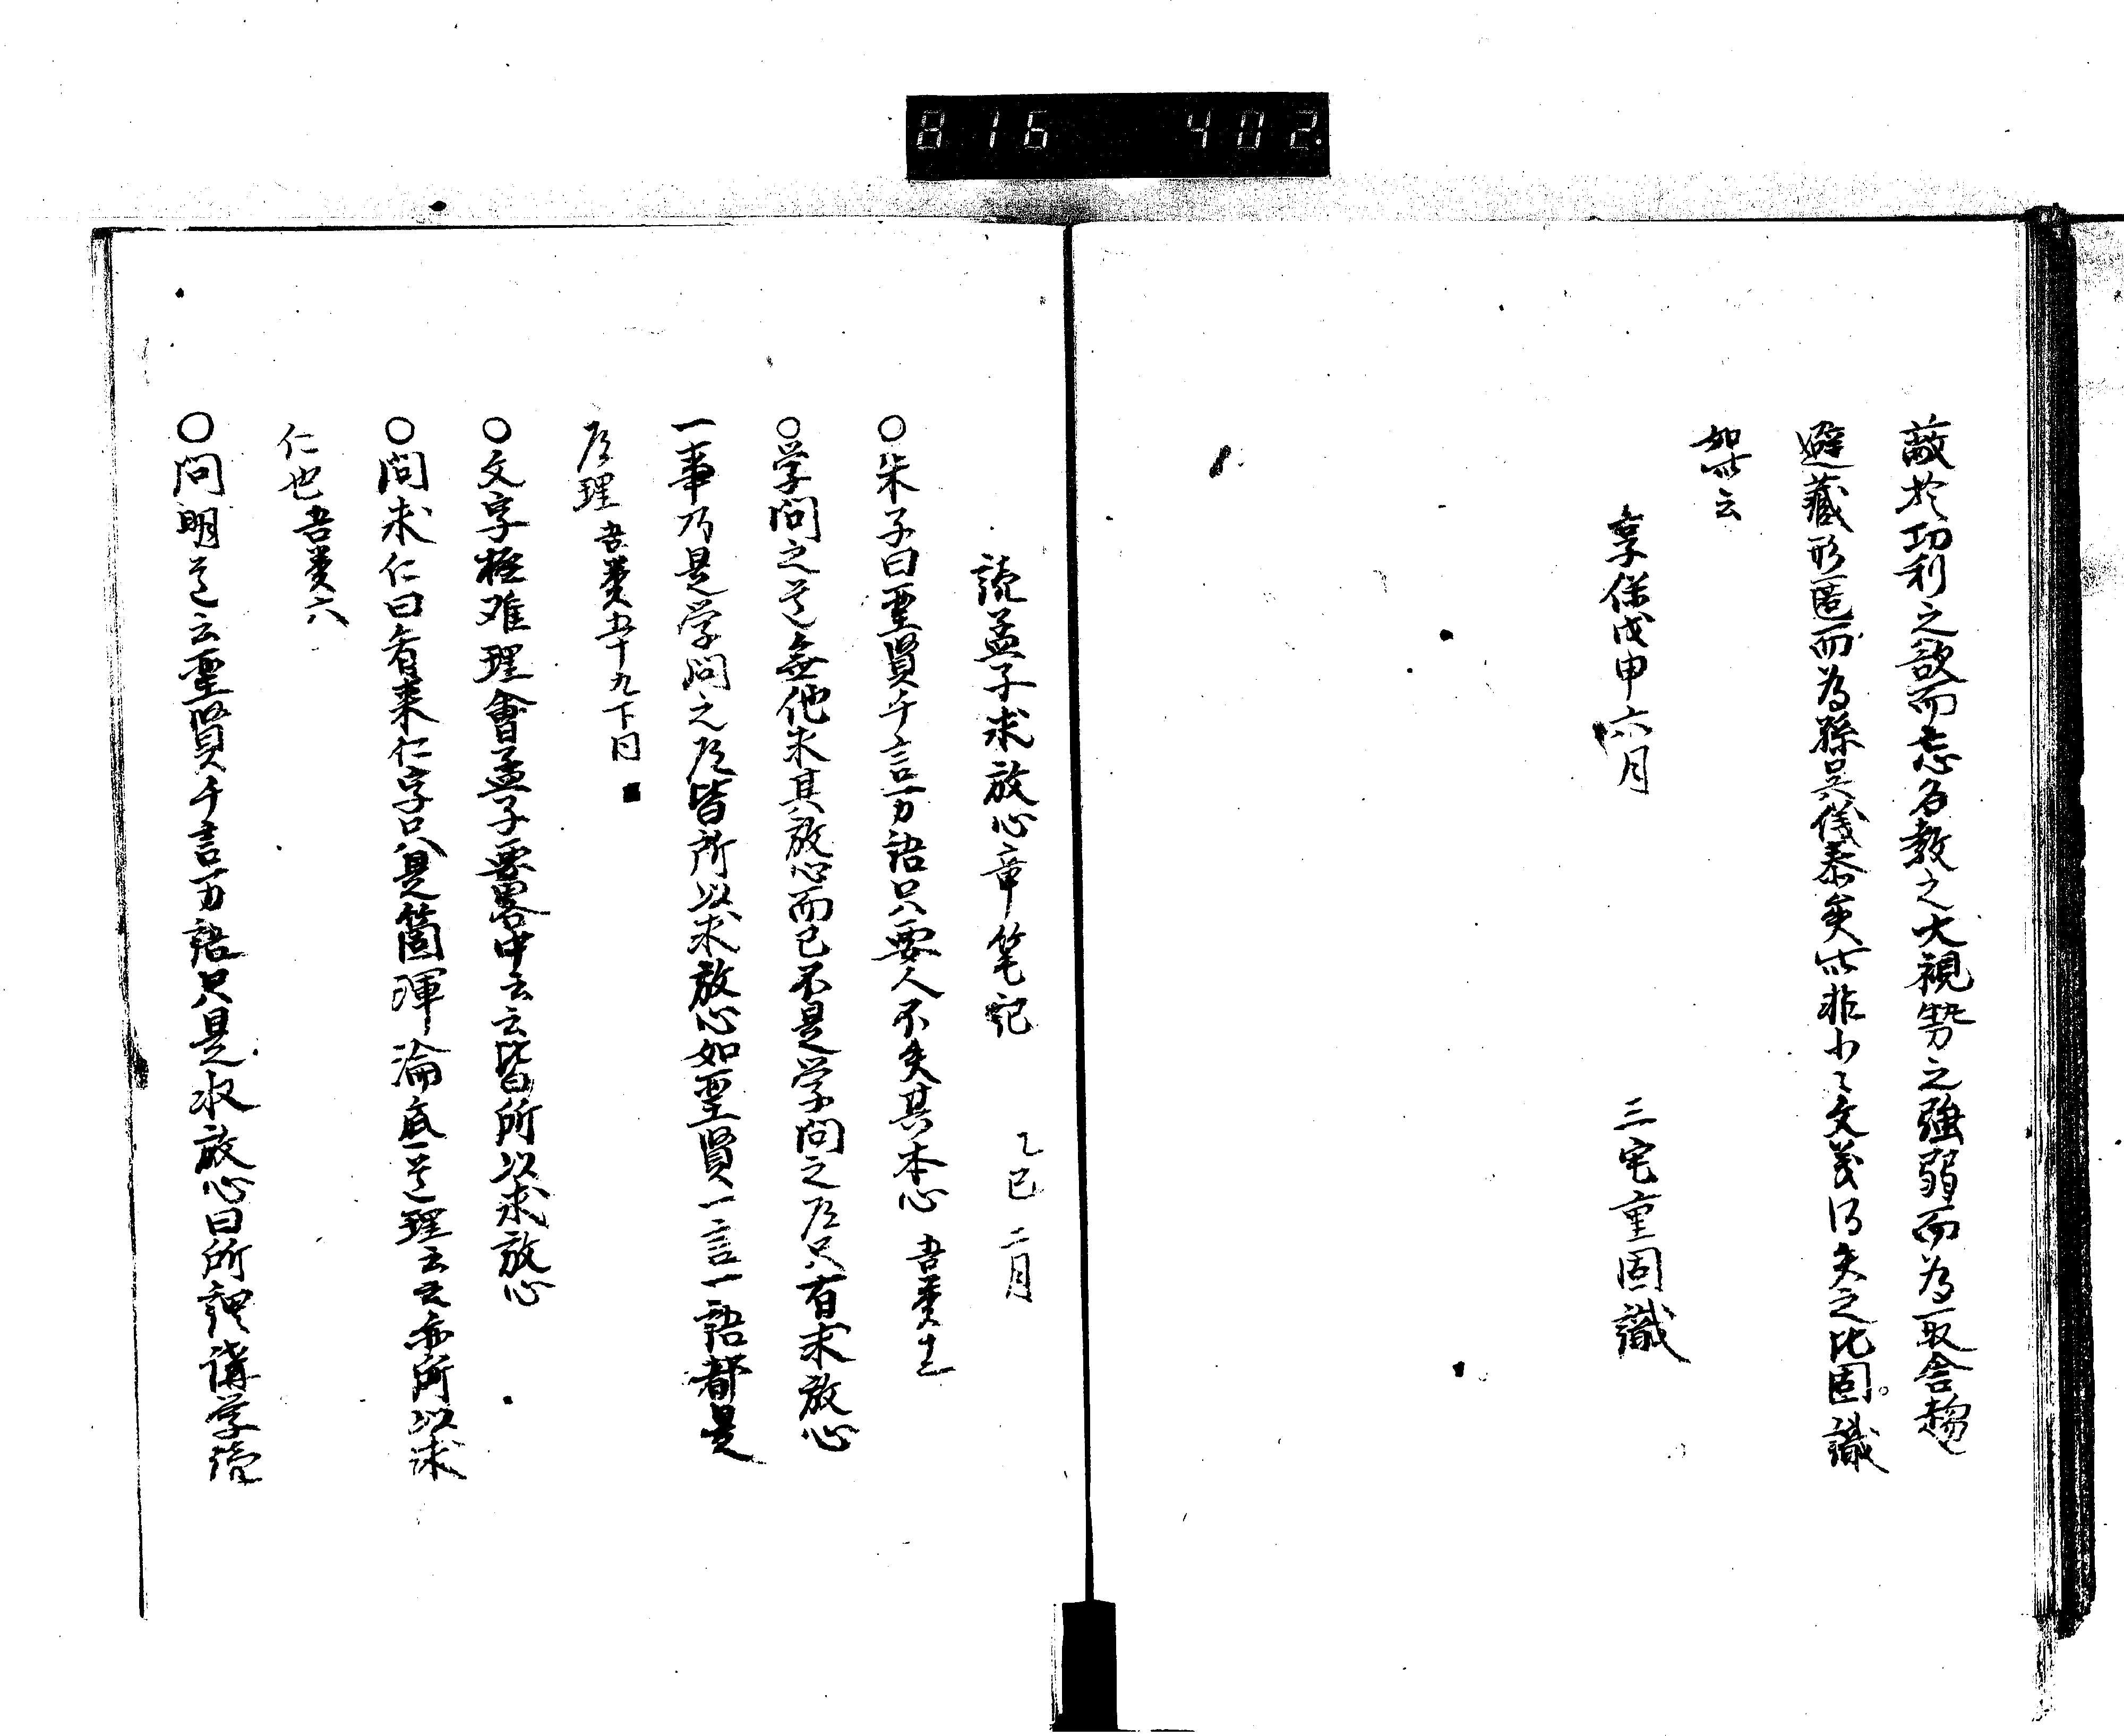 816 402.
蔽於功利之欲而忘名教之大視勢之強弱而為取舎趨
避藏形匿而為孫呉儀秦矣此非小〻文義得失之比固識
如此云
享保戊申六月 三宅重固識
読孟子求放心章筆記 乙巳二月
○朱子曰聖賢千言万語只要人不失其本心
○学問之道無他求其放心而已不是学問之道只有求放心
一事乃是学問之道皆所以求放心如聖賢一言一語都是
道理 五十九下同
○文字極难理會孟子要畧中云云皆所以求放心
○問求仁曰看来仁字只是箇渾淪底道理云云亦所以求
仁也 六
○問明道云聖賢千言万語只是收放心曰所謂講学読